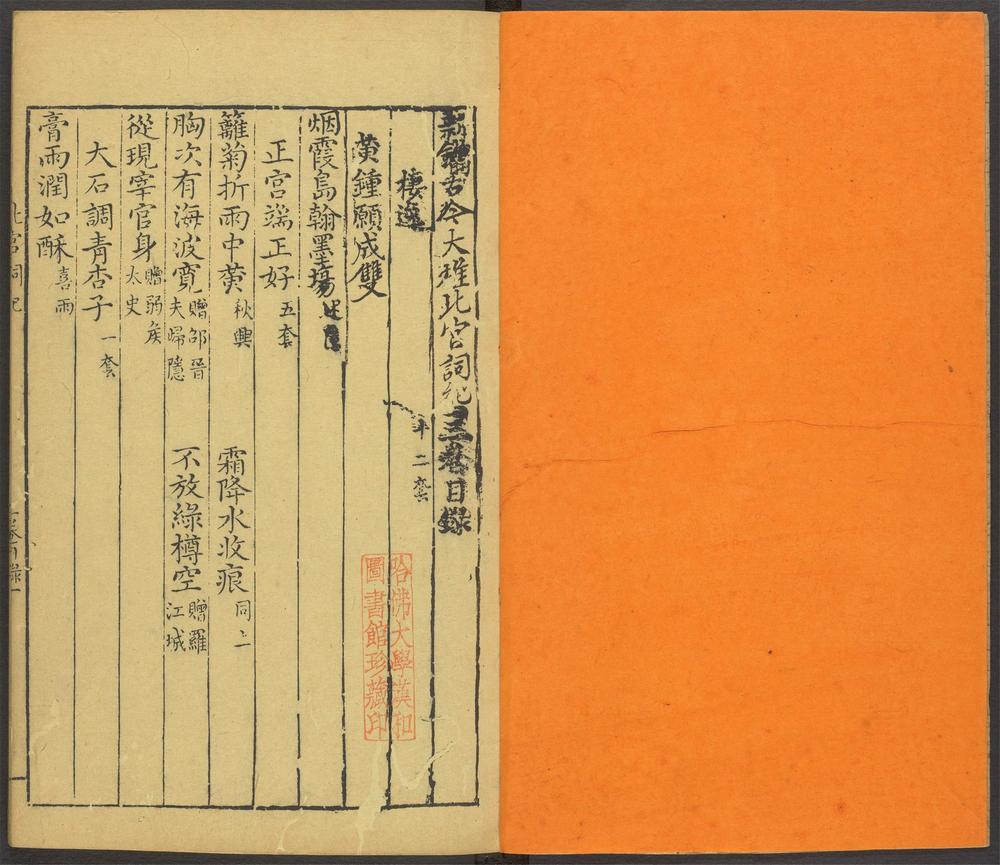 新鐫古今大雅北宮詞紀三卷目錄
棲逸 十二套
黃鍾願成雙
烟霞島翰墨場
正宮端正好 五套
籬菊折雨中黃 秋興 霜降水收痕 同上
胸次有海波寬 贈邵晉夫歸隱 不放綠樽空 贈羅江城
從現宰官身 贈弱矦太史
大石調青杏子 一套
膏雨潤如酥 喜雨
北宮詞紀
哈佛大學漢和
圖書館珍藏印